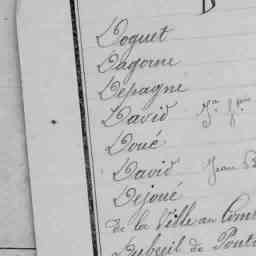 D
Doguet
Dagorne
Dépagne
David
Doué
David Jean
Dejoué
de la Ville au Comt
Dubreil de Pont